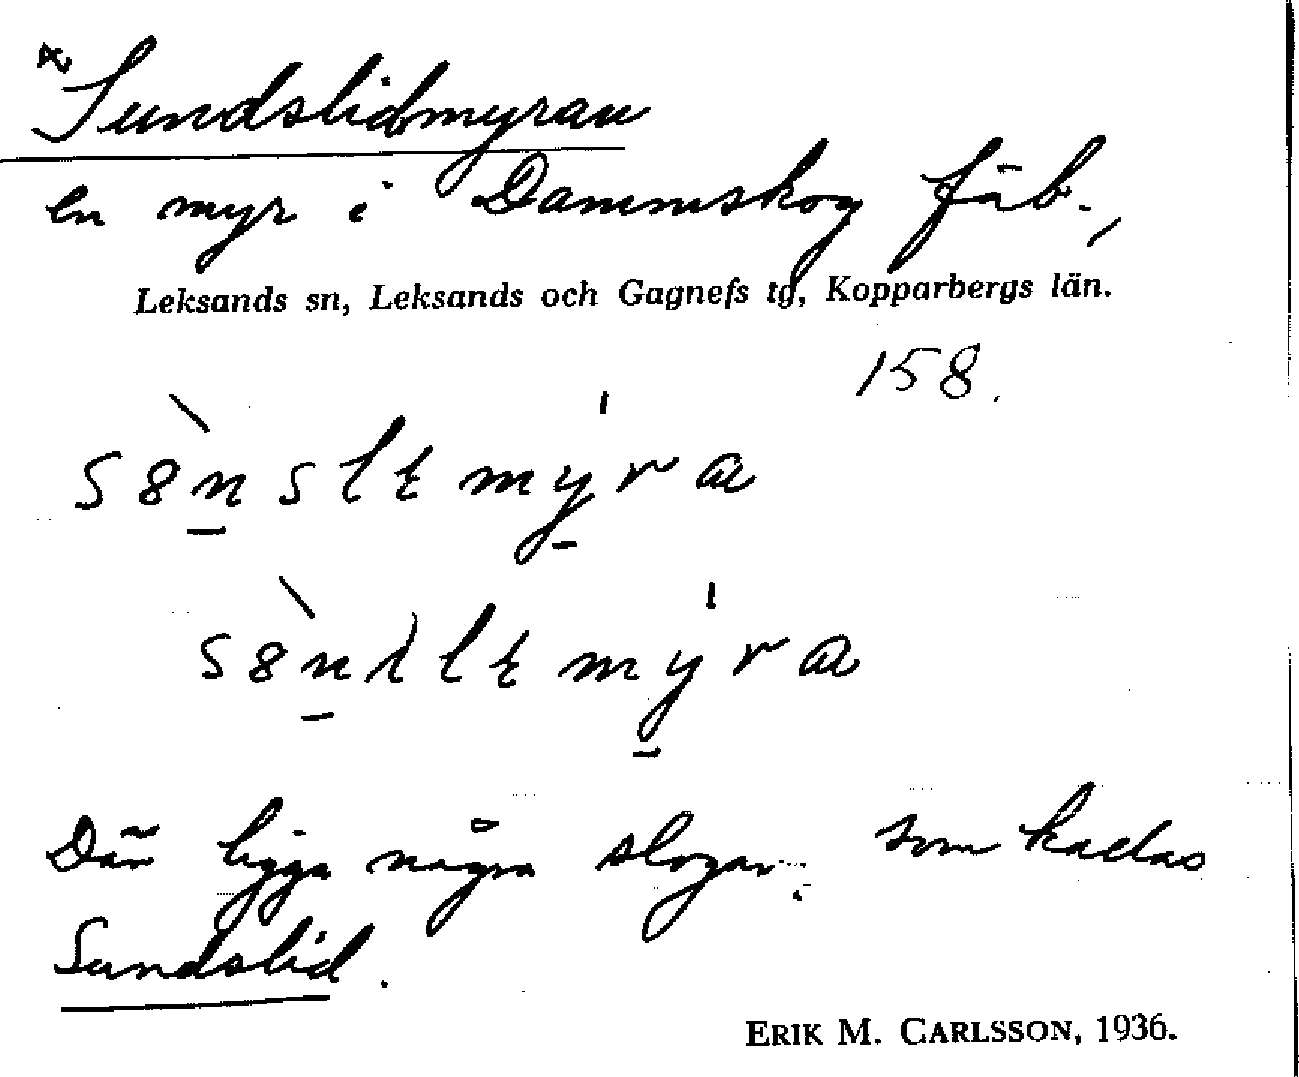 Sundslidmyran
en myr i Dammskog fäb.,
Leksands sn, Leksands och Gagnefs tg, Kopparbergs län.
158.
Där ligga några slogar, som kallas
Sundslid.
ERIK M. CARLSSON, 1936.